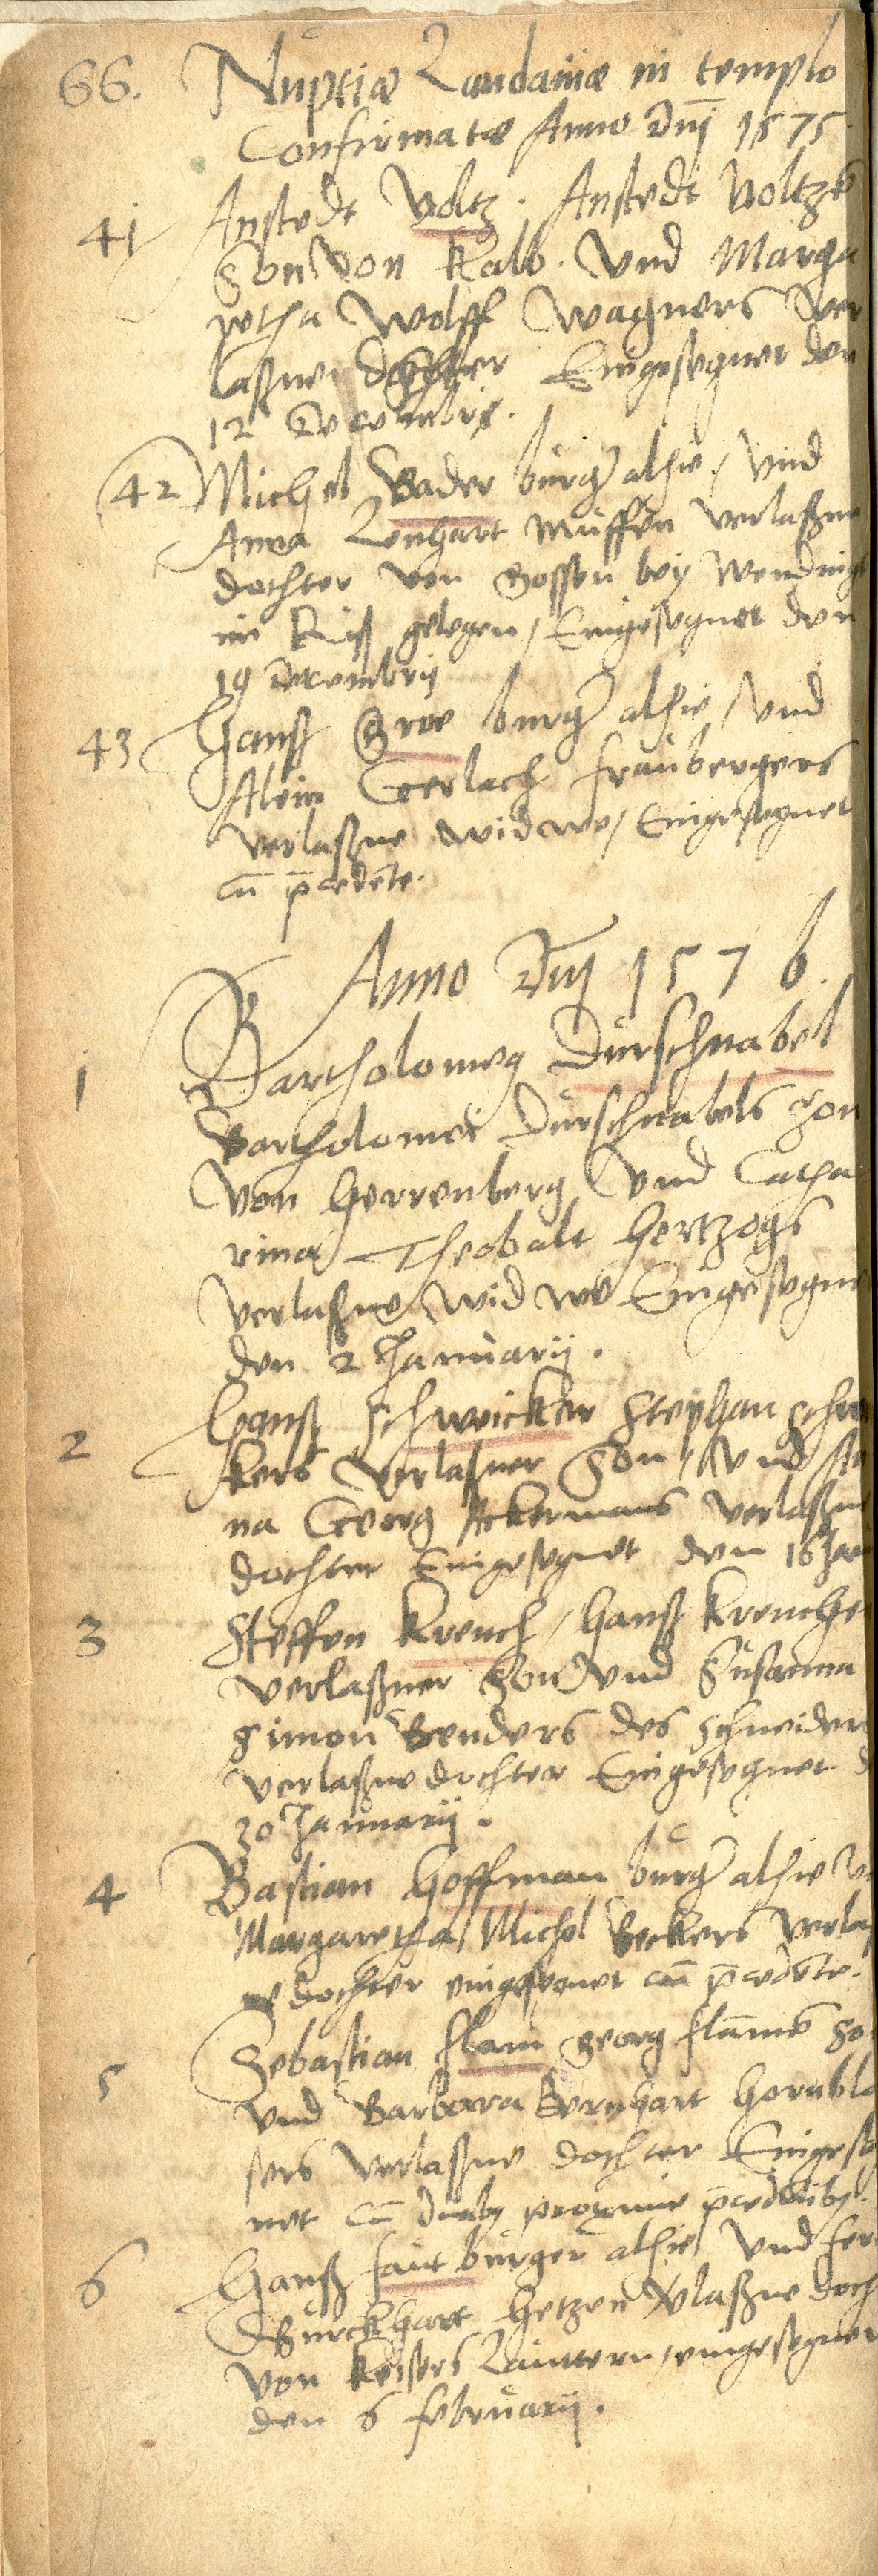 66. Nuptiæ Landaviæ in templo
Confirmatæ Anno Dnj 1575
41 Anstedt Voltz. Anstedt Voltzs
Son von Kalb. Vnd Marga
retha Wolff Wagners ver
laßne dochter Eingesegnet den
12 Decembris.
42 Michel Bader burger alhie / Vnd
Anna Lenhart Müssen verlaßne
dochter von Gossen bey Wemding
im Riß gelegen / Eingesegnet den
19 Decembrij
43 Hanß Gree burger alhie / Vnd
Gerlach fraubergers
verlaßne widwe / Eingesegnet
cū p̄cedēte.
Anno Dnj 1576.
1 Bartholomeg Dürschnabel
Bartholomei Dürschnabels son
von Herrenberg Vnd Catha
rina Theobalt Hertzogs
verlaßne widwe Eingesegne
den 2 Januarij.
2 Hanß Schwicker Stephan Schwi
kers verlaßner Son / Vnd An
na Georg Ackermans verlaßne
dochter Eingesegnet den 16 Jan
3 Steffen Krench / Hanß Krenche
verlaßner Son Vnd Susanna
Simon Benders des schneiders
verlaßne dochter Eingesegnet d
30 Januarij.
4 Bastian Hoffman burger alhie Vn
Margaretha Michel Beckers verlaß
ne dochter eingesegnet cū p̄cedēte.
5 Sebastian flam Georg flām̄s So
Vnd Barbara Bernhart Hornbla
sers verlaßne dochter Eingeseg
net cū duoby proxime p̄cedētiby.
6 Hanß faut burger alhie Vnd
Burckhart Hetzen vlaßne doch
von Keisers Lauttern / eingesegnet
den 6 februarij.